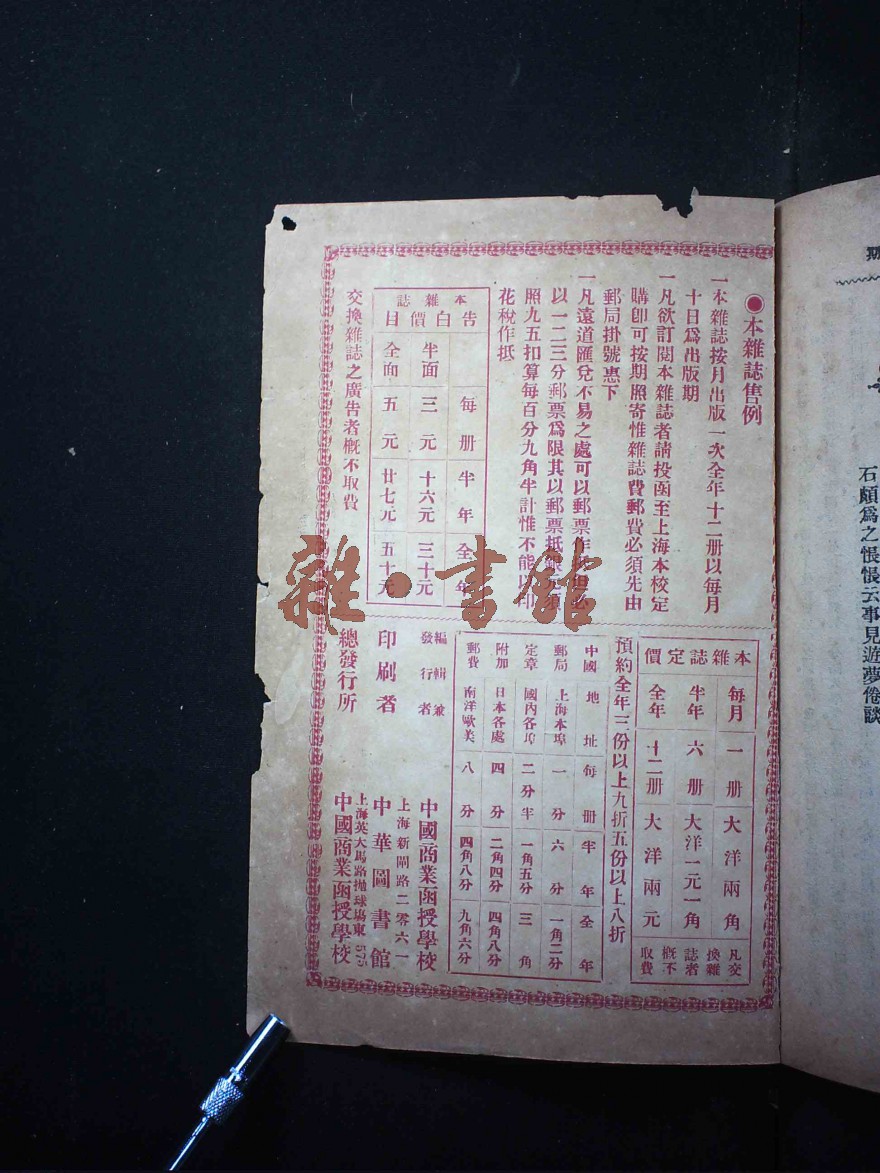 ●本雜誌售例
一本雜誌按月出版一次全年十二册以每月
十日爲出版期
一凡欲訂閱本雜誌者請投函至上海本校定
購卽可按期照寄惟雜誌費郵費必須先由
郵局掛號惠下
一凡遠道匯兌不易之處可以郵票作
以一二三分郵票爲限其以郵票抵銀
照九五扣算每百分九角半計惟不能以印
花稅作抵
本雜誌
告白價目
每册 半年 全年
半面 三元 十六元 三十元
全面 五元 廿七元 五十元
交換雜誌之廣告者槪不取費
本雜誌定價
每月 一册 大洋兩角
半年 六册 大洋一元一角
全年 十二册 大洋兩元
凡交
換雜
誌者
槪不
取費
預約全年三份以上九折五份以上八折
中國郵局定章附加郵費
地址 每册 半年 全年
上海本埠 一分 六分 一角二分
國內各埠 二分半 一角五分 三角
日本各處 四分 二角四分 四角八分
南洋歐美 八分 四角八分 九角六分
編輯兼
發行者
中國商業函授學校
上海新閘路二零六一
印刷者
中華圖書館
上海英大馬路拋球塲東 575
總發行所
中國商業函授學校
雜·書館
石頗爲之悵悵云事見遊夢倦談